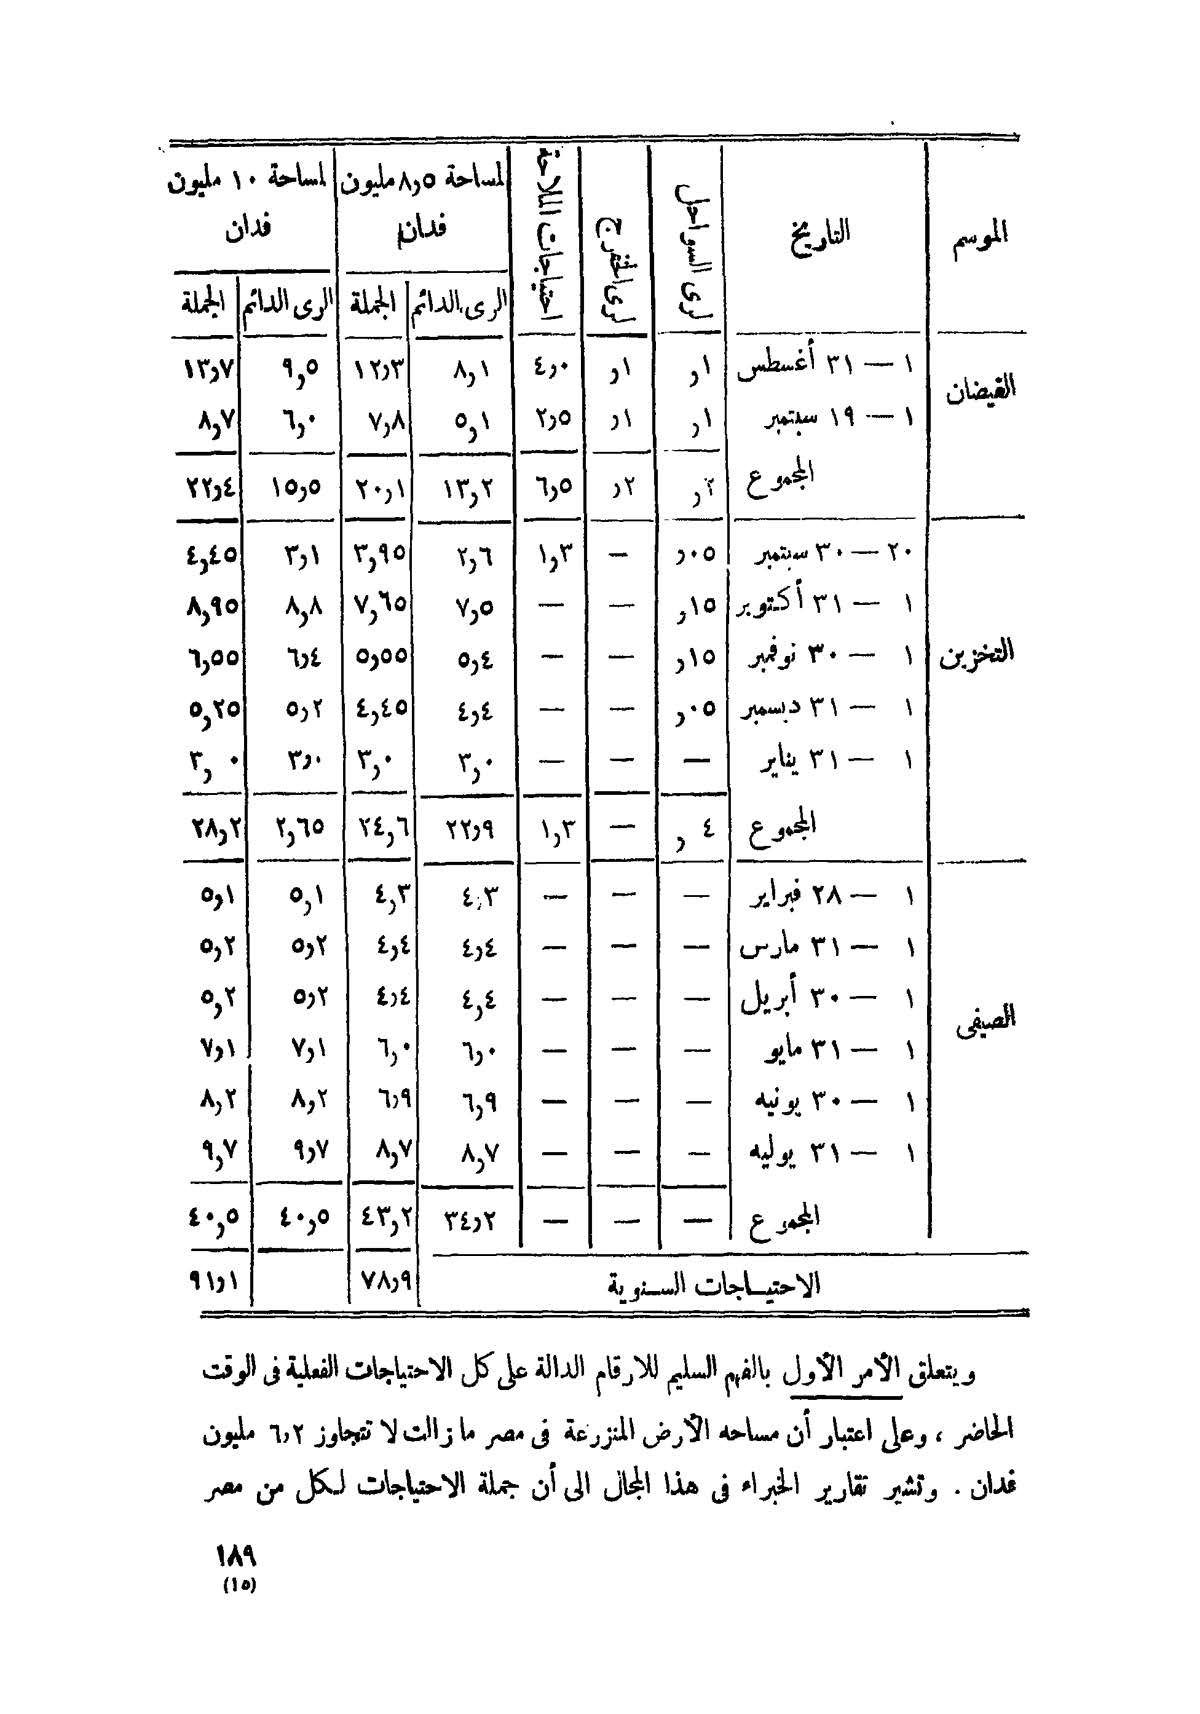 الموسم | التاريخ | لرى السواحل | لرى الخفرج | احتياجات الملاحة | لمساحة ٨٫٥ مليون فدان | لمساحة ١٠ مليون فدان
الرى الدائم | الجملة | الرى الدائم | الجملة
الفيضان | ١ — ٣١ أغسطس | ١ر | ١ر | ٤٫٠ | ٨٫١ | ١٢٫٣ | ٩٫٥ | ١٣٫٧
١ — ١٩ سبتمبر | ١ر | ١ر | ٢٫٥ | ٥٫١ | ٧٫٨ | ٦٫٠ | ٨٫٧
المجموع | ٢ر | ٢ر | ٦٫٥ | ١٣٫٢ | ٢٠٫١ | ١٥٫٥ | ٢٢٫٤
التخزين | ٢٠ — ٣٠ سبتمبر | ٠٥ر | — | ١٫٣ | ٢٫٦ | ٣٫٩٥ | ٣٫١ | ٤٫٤٥
١ — ٣١ أكتوبر | ١٥ر | — | — | ٧٫٥ | ٧٫٦٥ | ٨٫٨ | ٨٫٩٥
١ — ٣٠ نوفمبر | ١٥ر | — | — | ٥٫٤ | ٥٫٥٥ | ٦٫٤ | ٦٫٥٥
١ — ٣١ ديسمبر | ٠٥ر | — | — | ٤٫٤ | ٤٫٤٥ | ٥٫٢ | ٥٫٢٥
١ — ٣١ يناير | — | — | — | ٣٫٠ | ٣٫٠ | ٣٫٠ | ٣٫٠
المجموع | ٤ر | — | ١٫٣ | ٢٢٫٩ | ٢٤٫٦ | ٢٫٦٥ | ٢٨٫٢
الصيفى | ١ — ٢٨ فبراير | — | — | — | ٤٫٣ | ٤٫٣ | ٥٫١ | ٥٫١
١ — ٣١ مارس | — | — | — | ٤٫٤ | ٤٫٤ | ٥٫٢ | ٥٫٢
١ — ٣٠ أبريل | — | — | — | ٤٫٤ | ٤٫٤ | ٥٫٢ | ٥٫٢
١ — ٣١ مايو | — | — | — | ٦٫٠ | ٦٫٠ | ٧٫١ | ٧٫١
١ — ٣٠ يونيه | — | — | — | ٦٫٩ | ٦٫٩ | ٨٫٢ | ٨٫٢
١ — ٣١ يوليه | — | — | — | ٨٫٧ | ٨٫٧ | ٩٫٧ | ٩٫٧
المجموع | — | — | — | ٣٤٫٢ | ٤٣٫٢ | ٤٠٫٥ | ٤٠٫٥
الاحتيــاجات الســنوية | ٧٨٫٩ | ٩١٫١
ويتعلق الأمر الأول بالفهم السليم للارقام الدالة على كل الاحتياجات الفعلية فى الوقت
الحاضر ، وعلى اعتبار أن مساحه الأرض المنزرعة فى مصر ما زالت لا تتجاوز ٦٫٢ مليون
فدان . وتشير تقارير الخبراء فى هذا المجال الى أن جملة الاحتياجات لكل من مصر
١٨٩
(١٥)